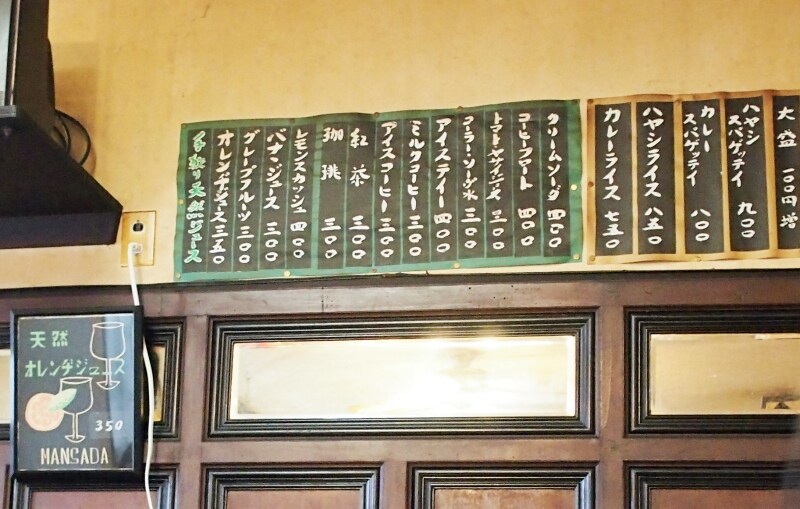 大盛 一〇〇円増
ハヤシスパゲッティ 九〇〇
カレースパゲッティ 八〇〇
ハヤシライス 八五〇
カレーライス 七五〇
クリームソーダ 四〇〇
コーヒフロート 四〇〇
コーラー・ソーダ水 三〇〇
アイスティー 四〇〇
ミルクコーヒー 三〇〇
アイスコーヒー 三〇〇
紅茶 三〇〇
珈琲 三〇〇
レモンスカッシュ 四〇〇
バナヽジュース 三〇〇
グレープフルーツ 三〇〇
オレンヂジュース 三五〇
手搾り天然ジュース
天然
オレンヂジュース
350
MANSADA